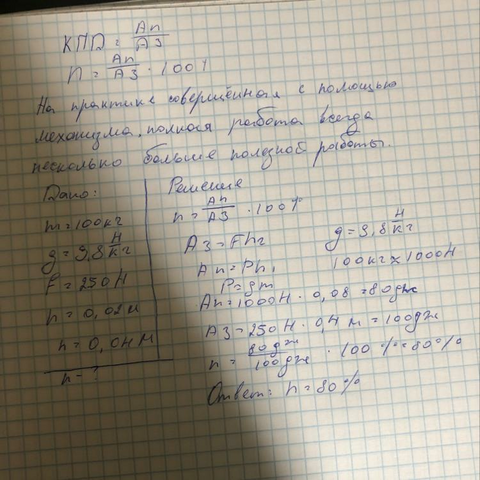 КПД = Ап/Аз
n = Ап/Аз · 100%
На практике совершённая с помощью
механизма полная работа всегда
несколько больше полезной работы.
Дано:
m = 100 кг
g = 9,8 Н/кг
F = 250 Н
h = 0,08 м
h = 0,04 м
n - ?
Решение
n = Ап/Аз · 100%
Аз = Fh₂
g = 9,8 Н/кг
Ап = Ph₁
100кг × 1000Н
P = gm
Ап = 1000Н · 0,08 = 80 дж
Аз = 250 Н · 0,4 м = 100 дж
n = 80 дж/100 дж · 100% = 80%
Ответ: n = 80%